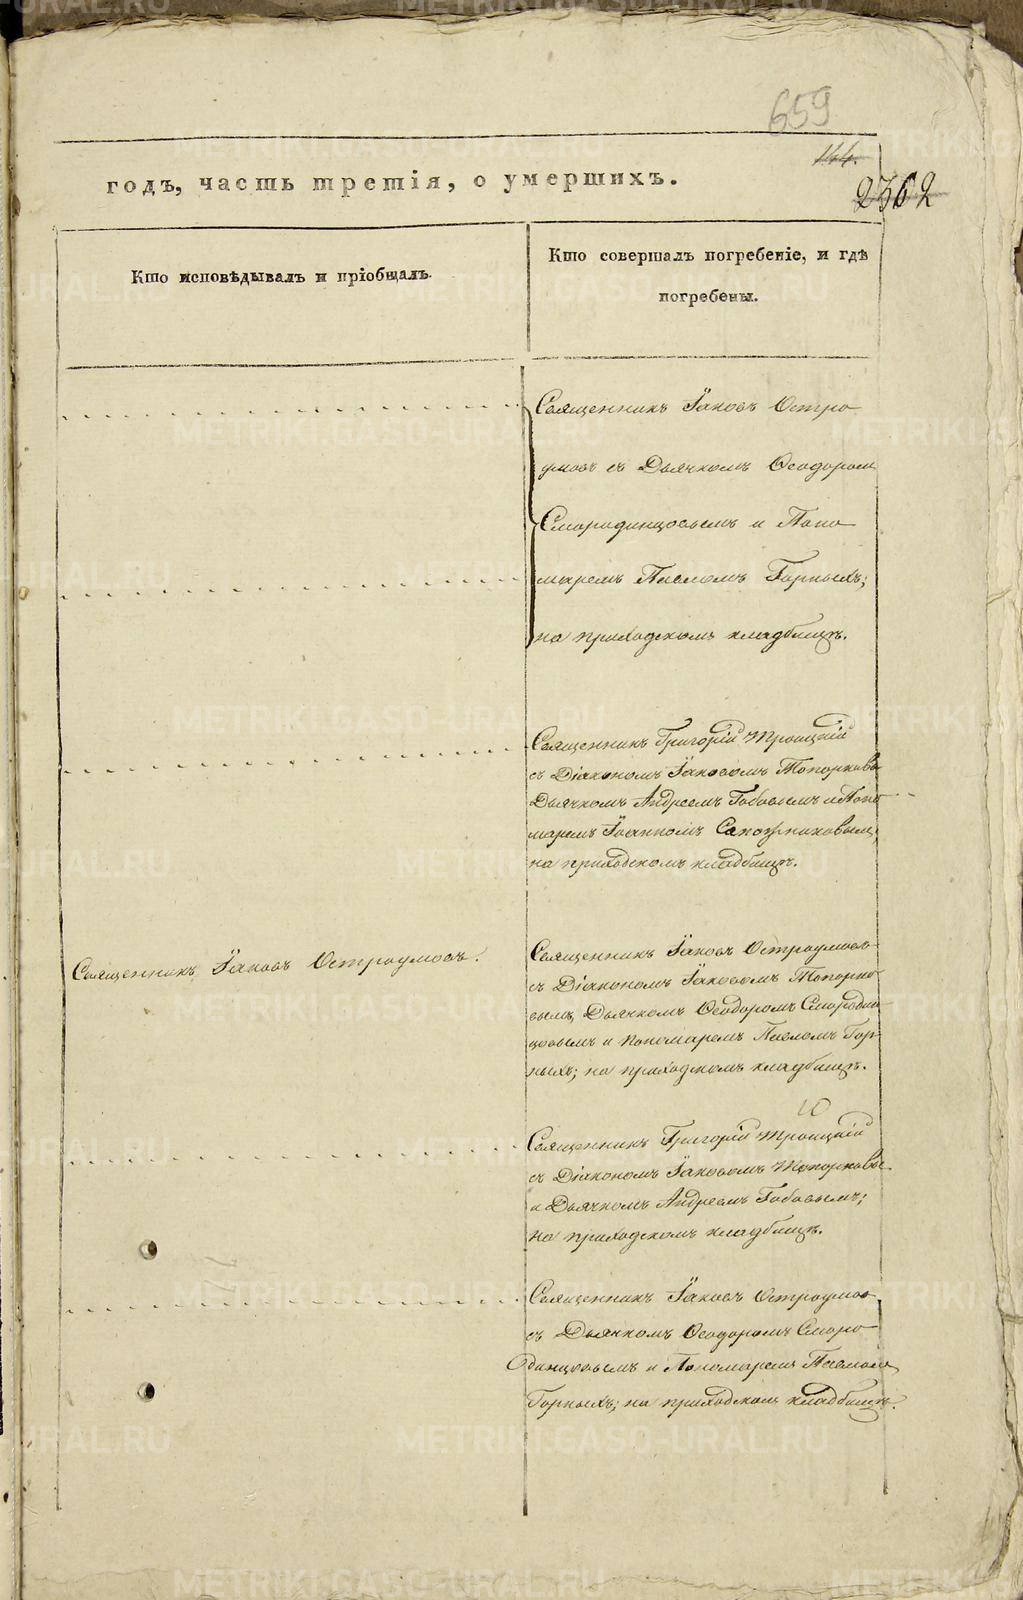 659
144.
2362
годъ, часть третія, о умершихъ.
Кто исповѣдывалъ и пріобщалъ.
Кто совершалъ погребеніе, и гдѣ
погребены.
Священникъ Іаковъ Остро
умовъ съ Дьячкомъ Ѳеодоромъ
Смородинцовымъ и Поно
маремъ Павломъ Горныхъ;
на приходскомъ кладбищѣ.
Священникъ Григорій Троицкій
съ Діакономъ Іаковомъ Топорковы
Дьячкомъ Андреемъ Бабовымъ и Поно
маремъ Іоанномъ Сапожниковымъ,
на приходскомъ кладбищѣ.
Священникъ Іаковъ Остроумовъ.
Священникъ Іаковъ Остроумовъ
съ Діакономъ Іаковомъ Топорко
вымъ, Дьячкомъ Ѳеодоромъ Смородин
цовымъ и пономаремъ Павломъ Гор
ныхъ; на приходскомъ кладбищѣ.
Священникъ Григорій Троицкій
съ Діакономъ Іаковомъ Топорковы
и Дьячкомъ Андреемъ Бабовымъ;
на приходскомъ кладбищѣ.
Священникъ Іаковъ Остроумов
съ Дьячкомъ Ѳеодоромъ Сморо
динцовымъ и Пономаремъ Павломъ
Горныхъ; на приходскомъ кладбищѣ.
METRIKI.GASO-URAL.RU